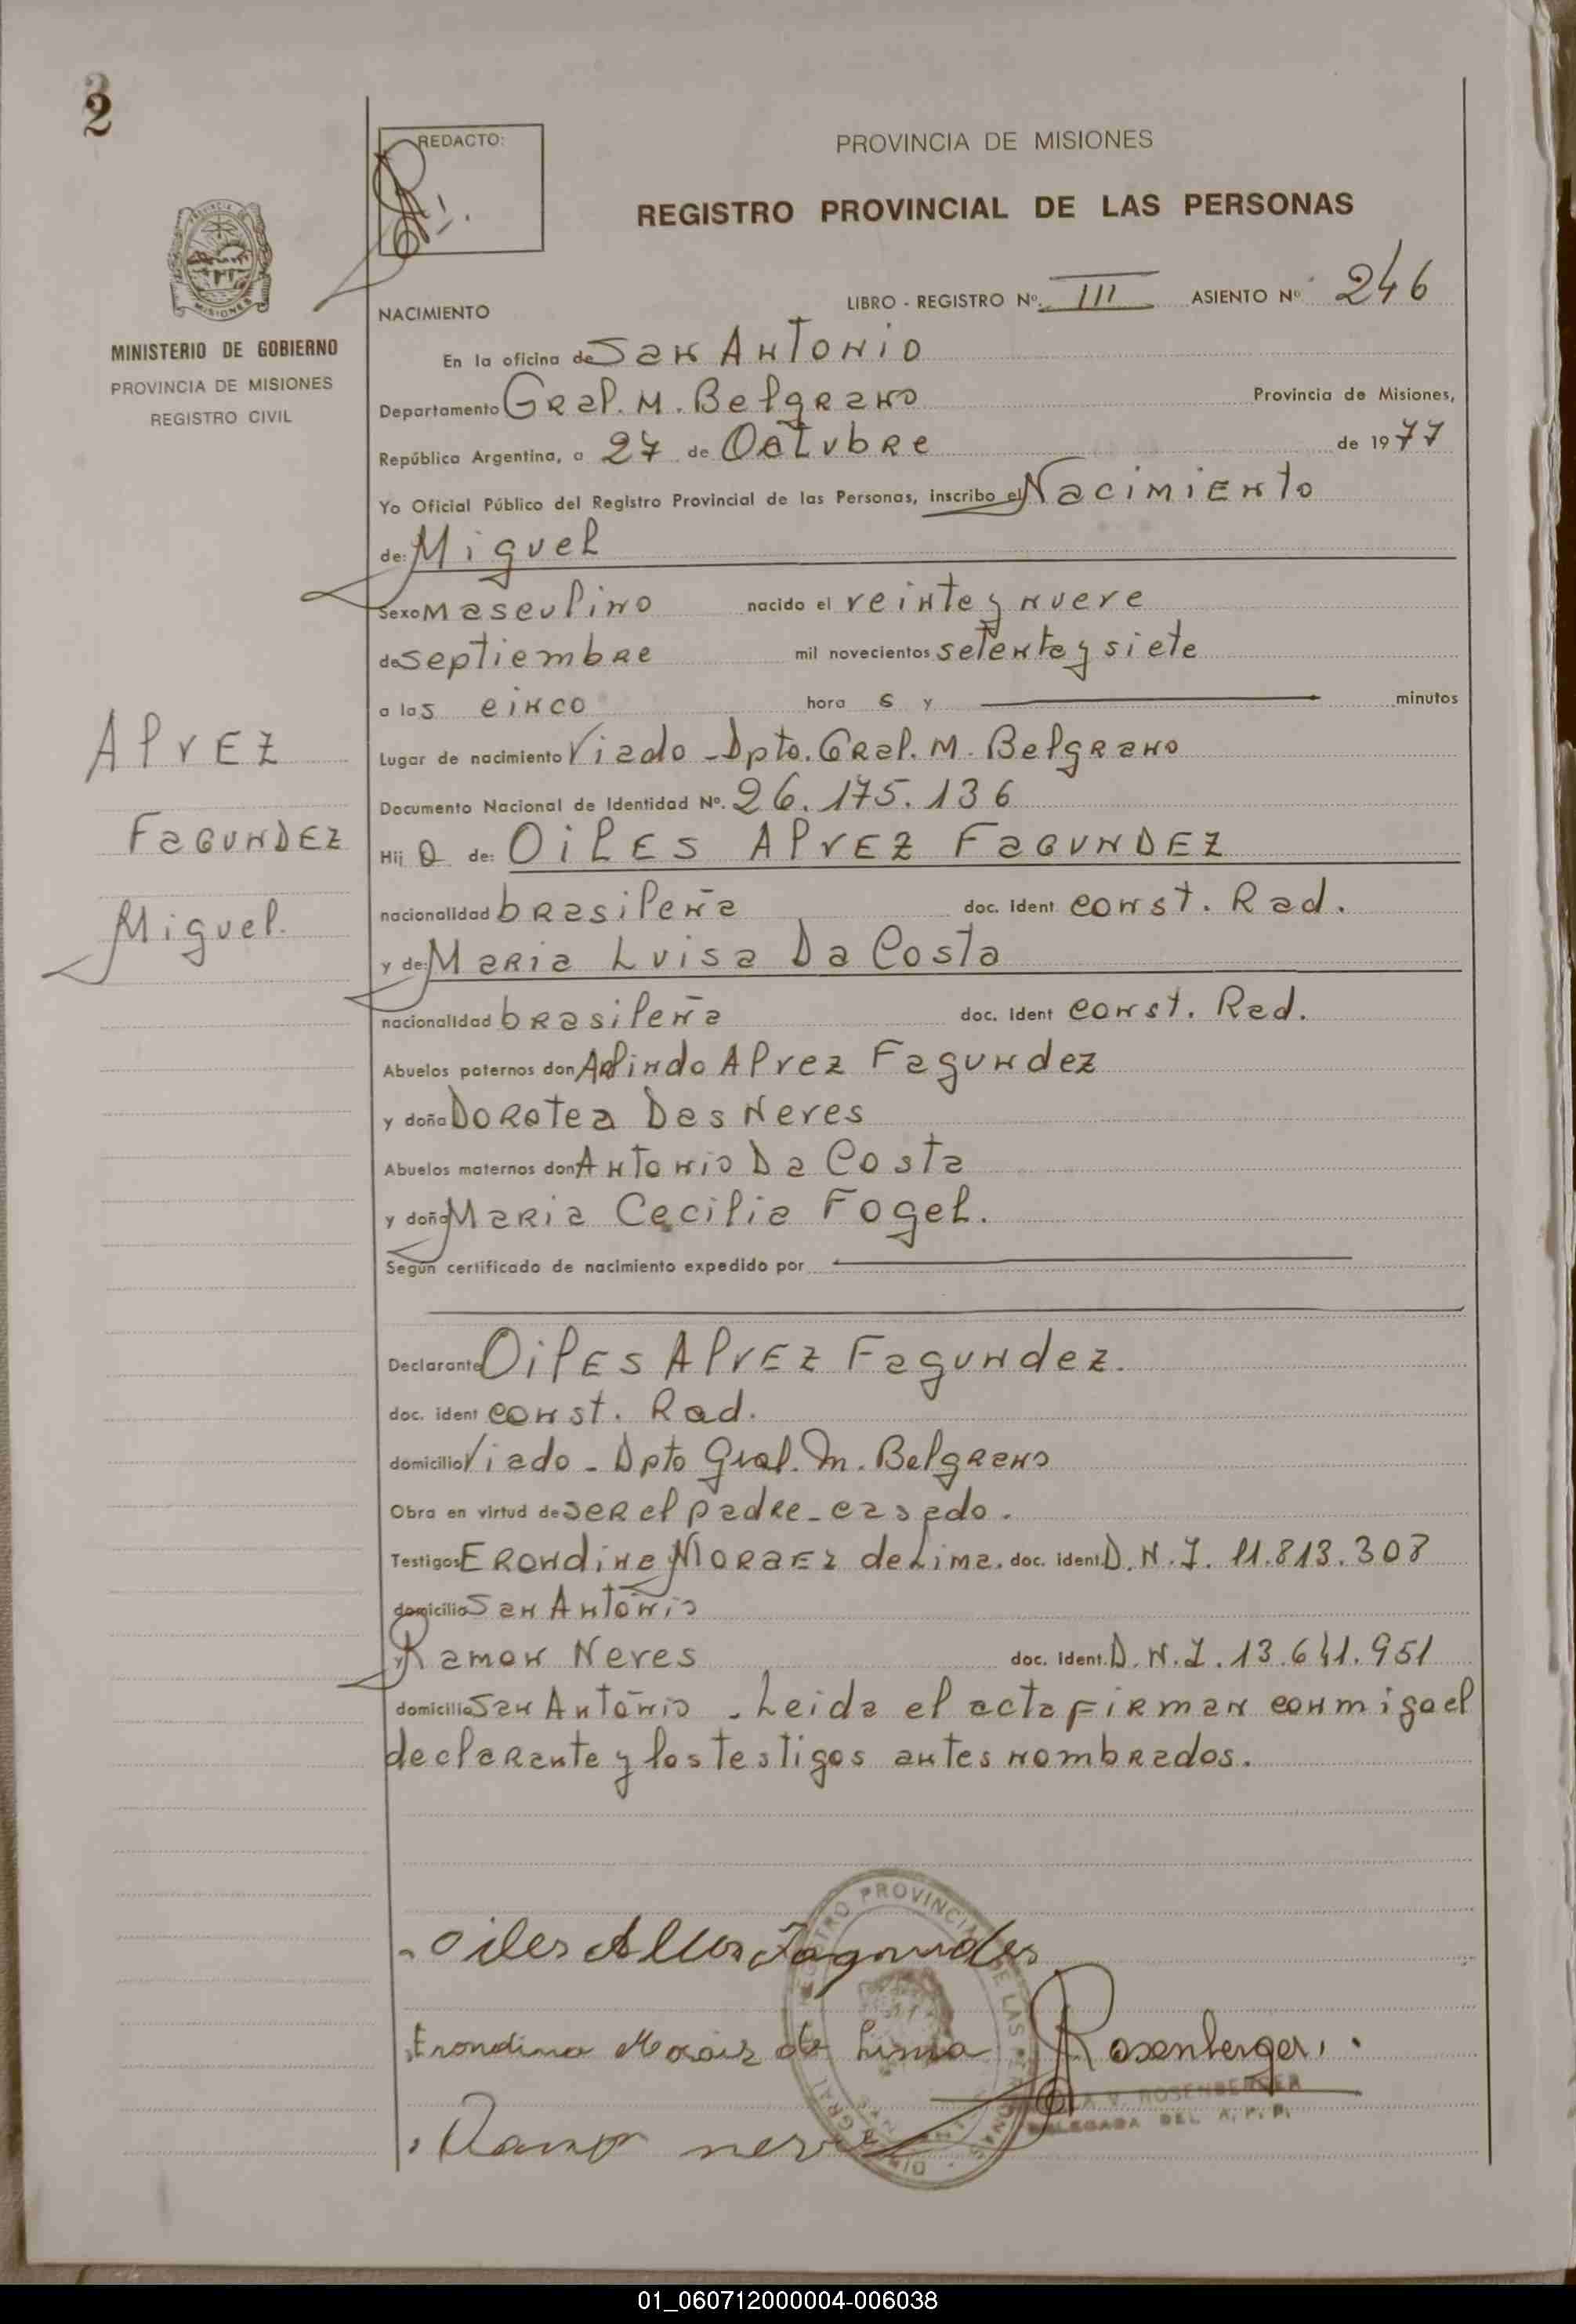 2
REDACTO:
PROVINCIA DE MISIONES
REGISTRO PROVINCIAL DE LAS PERSONAS
MINISTERIO DE GOBIERNO
PROVINCIA DE MISIONES
REGISTRO CIVIL
NACIMIENTO
LIBRO - REGISTRO Nº. III ASIENTO Nº 246
En la oficina de San Antonio
Departamento Gral. M. Belgrano Provincia de Misiones,
República Argentina, a 27 de Octubre de 1977
Yo Oficial Público del Registro Provincial de las Personas, inscribo el Nacimiento
de: Miguel
Sexo masculino nacido el veinte y nueve
de septiembre mil novecientos setenta y siete
a las cinco hora s y minutos
Lugar de nacimiento Viado - Dpto. Gral. M. Belgrano
Documento Nacional de Identidad Nº. 26.175.136
Alvez
Fagundez
Miguel.
Hij o de: Oiles Alvez Fagundez
nacionalidad brasileña doc. ident const. Rad.
y de: Maria Luisa Da Costa
nacionalidad brasileña doc. ident const. Rad.
Abuelos paternos don Arlindo Alvez Fagundez
y doña Dorotea Das Neves
Abuelos maternos don Antonio Da Costa
y doña Maria Cecilia Fogel.
Según certificado de nacimiento expedido por
Declarante Oiles Alvez Fagundez.
doc. ident const. Rad.
domicilio Viado - Dpto Gral. M. Belgrano
Obra en virtud de ser el padre - casado.
Testigos Erondina Moraez de Lima. doc. ident D.N.I. 11.813.308
domicilio San Antonio
y Ramon Neves doc. ident. D.N.I. 13.641.951
domicilio San Antonio - Leida el acta firman conmigo el
declarante y los testigos antes nombrados.
Oiles Alves Fagundes
Erondina Moraiz de Lima Rosenberger
V. ROSENBERGER
DELEGADA DEL R.P.P.
Ramon neves
REGISTRO PROVINCIAL DE LAS PERSONAS
01_060712000004-006038